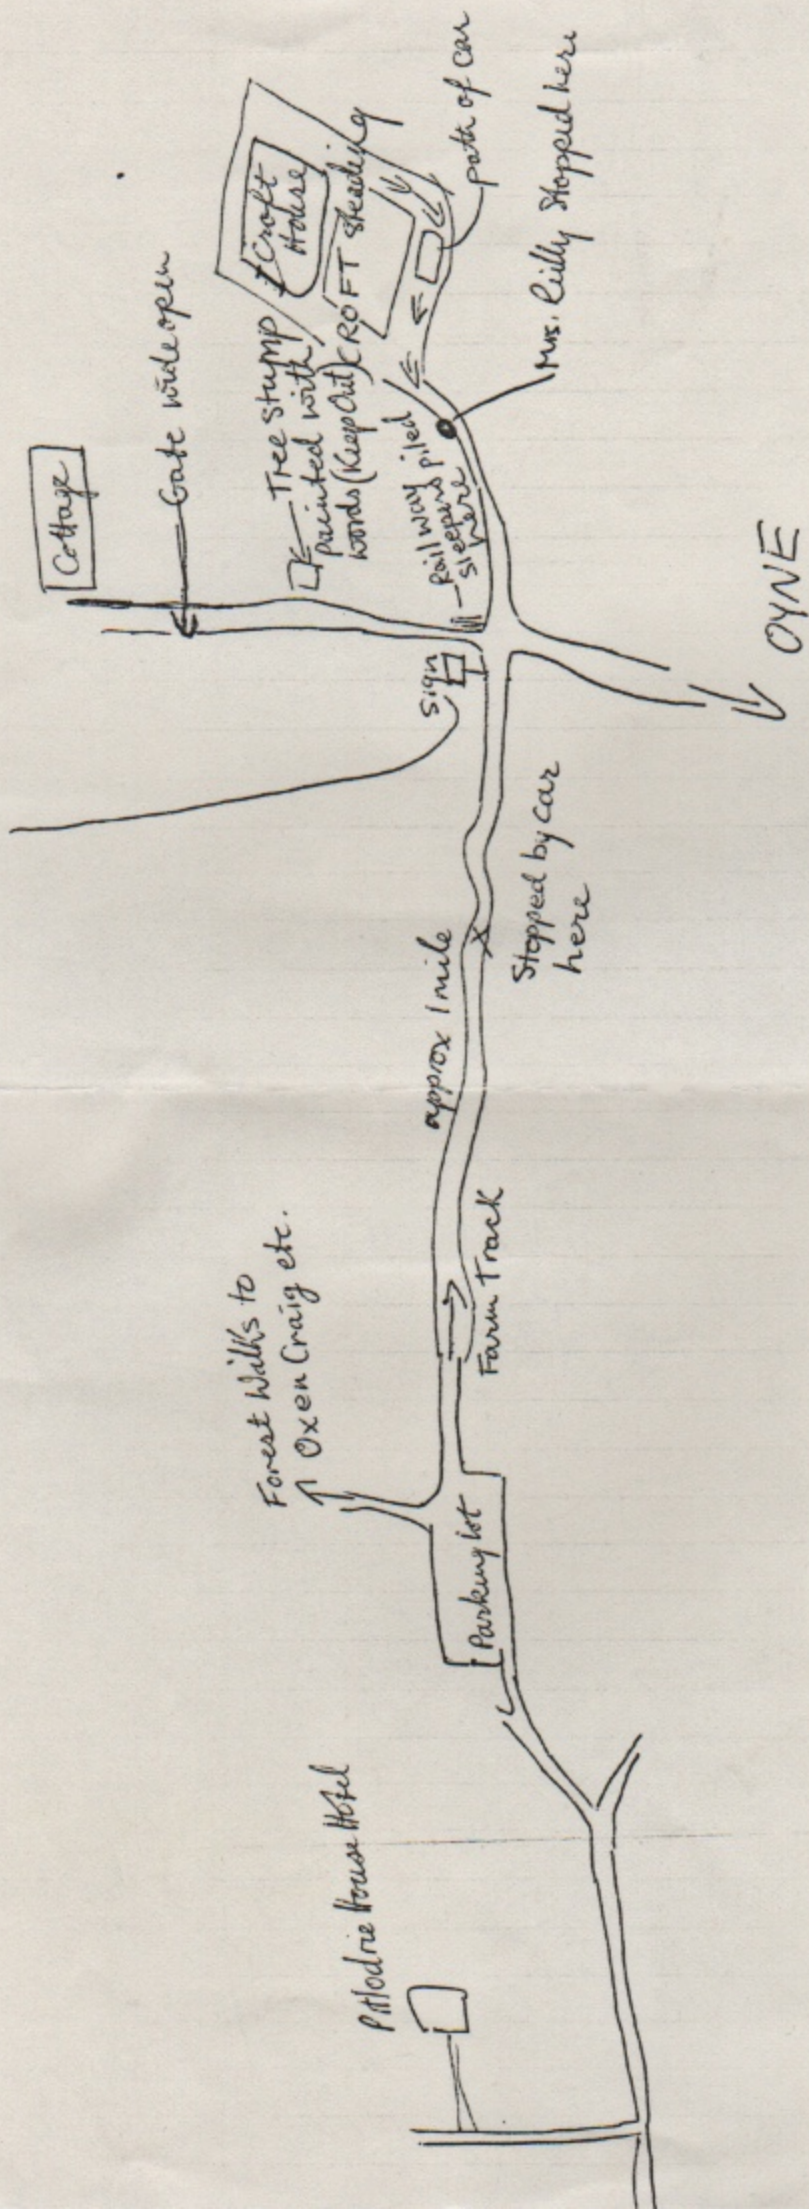 Pittodrie House Hotel
Parking lot
Forest Walks to
Oxen Craig etc.
Farm Track
approx 1 mile
Stopped by car
here
Sign
OYNE
Cottage
Gate wide open
Tree Stump
painted with
words (Keep Out)
Railway
sleepers piled
here
Croft
House
CROFT Steading
path of car
Mrs. Reilly Stopped here